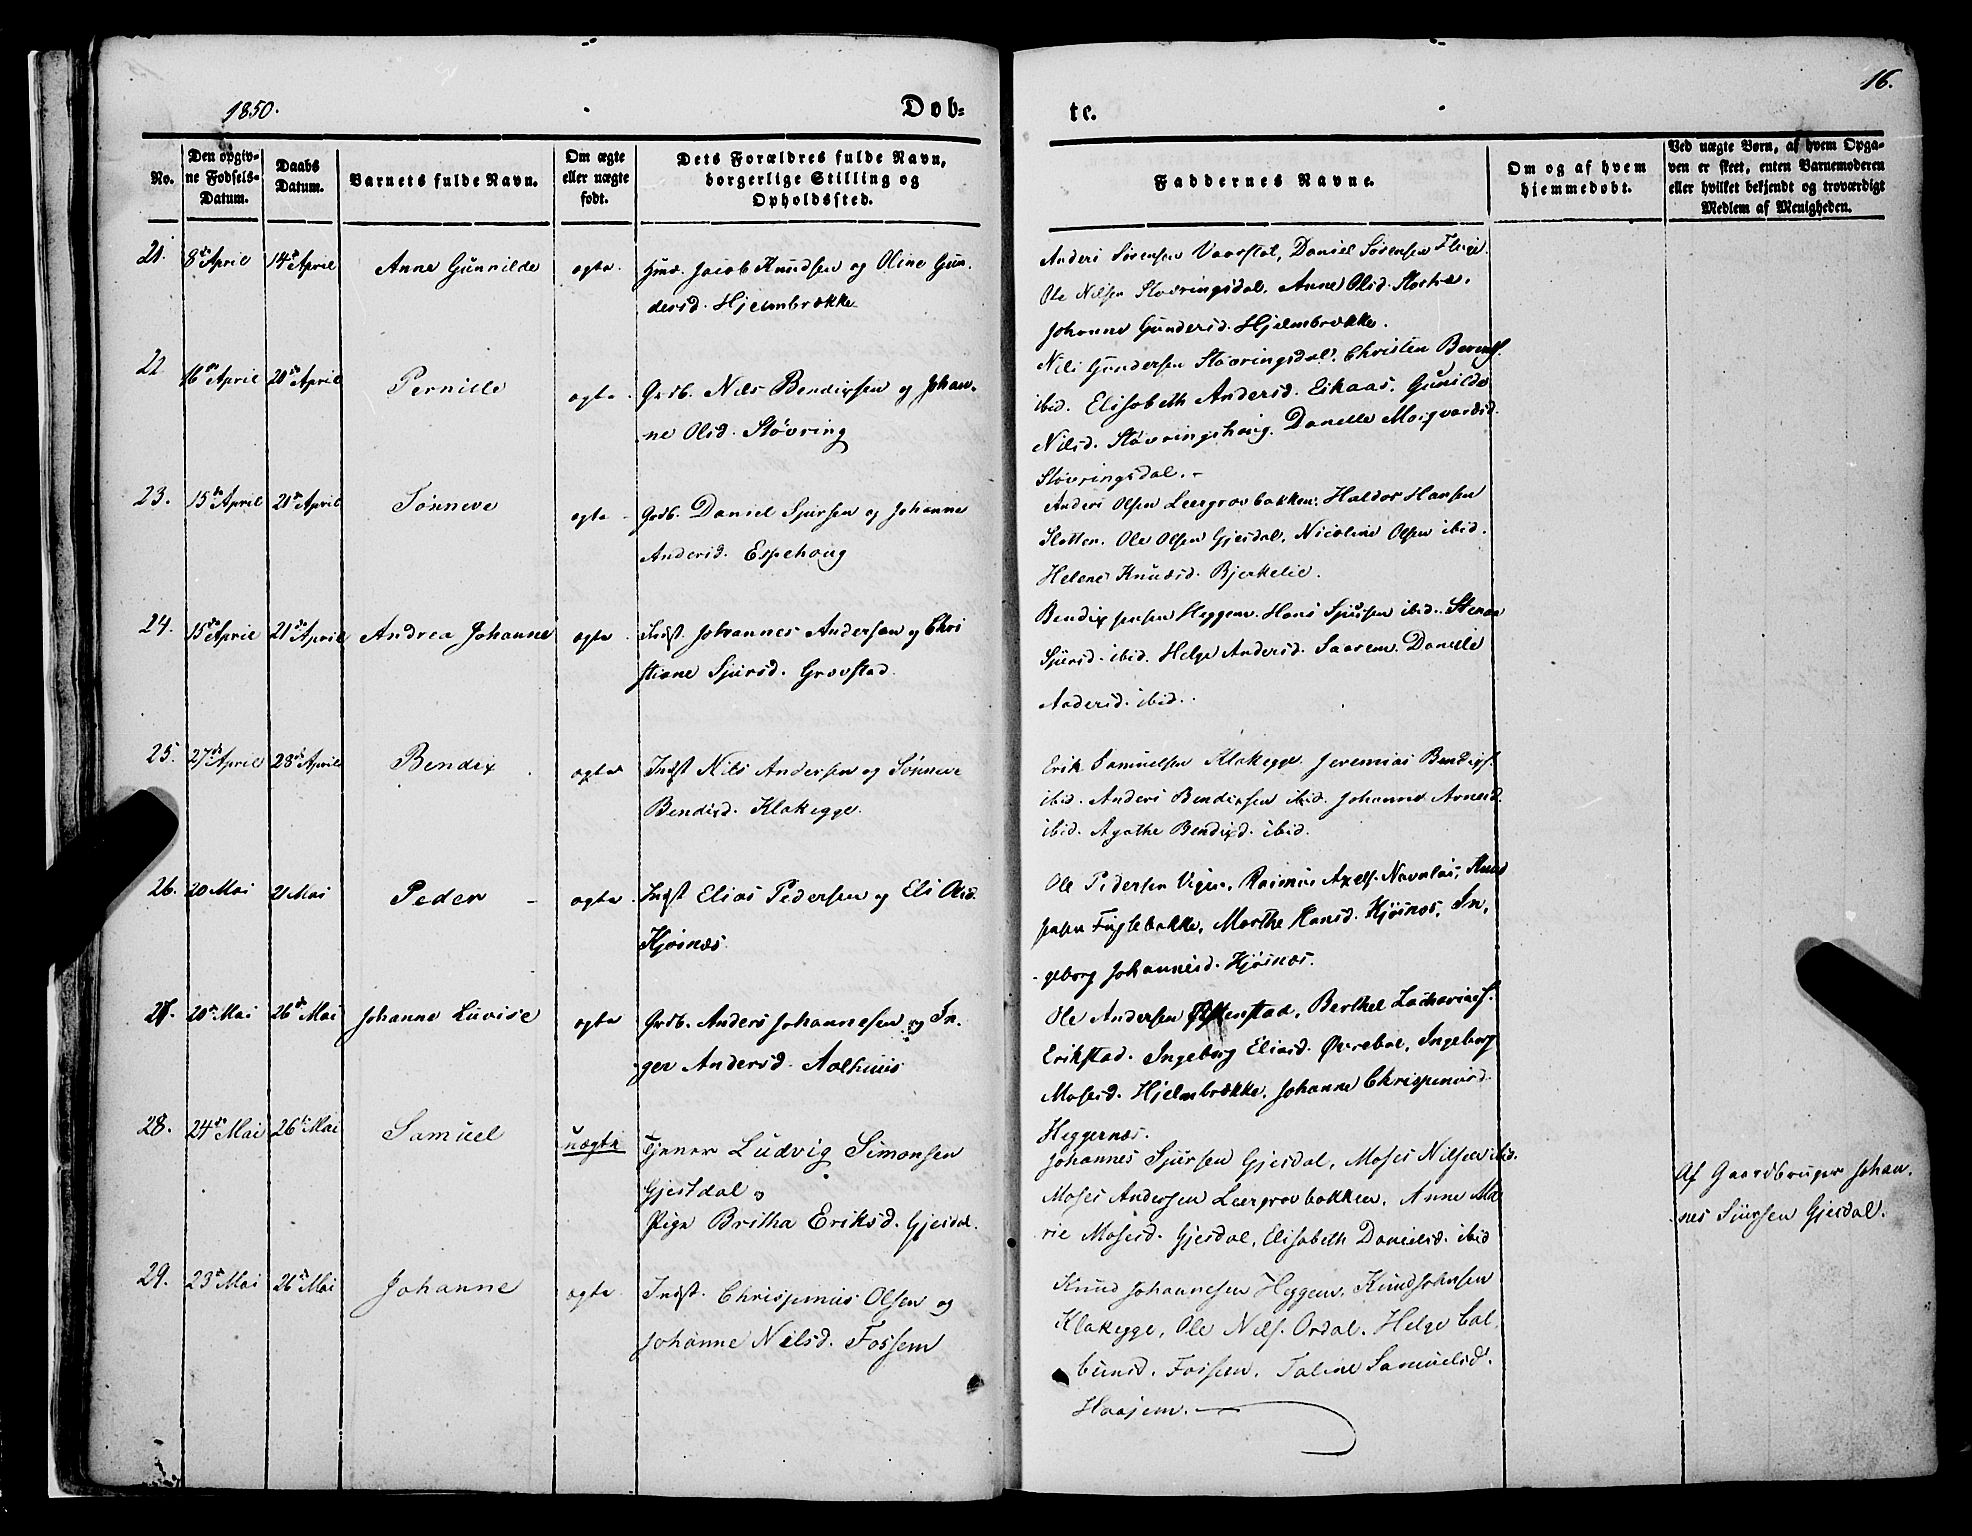 1850.
Døb-
te.
16.
No.
Den opgiv-
ne Fødsels-
Datum.
Daabs
Datum.
Barnets fulde Navn.
Om ægte
eller uægte
født.
Dets Forældres fulde Navn,
borgerlige Stilling og
Opholdssted.
Faddernes Navne.
Om og af hvem
hjemmedøbt.
Ved uægte Børn, af hvem Opga-
ven er skeet, enten Barnemoderen
eller hvilket bekjendt og troværdigt
Medlem af Menigheden.
21. 8de April 14de April Anne Gunnilde ægte. Huusm. Jacob Knudsen og Oline Gun-
dersd. Hjelmbrække
Anders Sørensen Vaarstal, Daniel Sørensen Fluge.
Ole Nilsen Støvringsdal, Anne Olsd.
Johanne Gundersd. Hjelmbrække.
22 16de April 20de April Pernille ægte. Grdb. Nils Bendixsen og Johan-
ne Olsd. Støvring
Nils Gundersen Støvringsdal, Christen Berents.
ibid. Elisabeth Andersd. Eikaas, Gunilde
Nilsd. Støvringshoug. Danelle Masqvardsd.
Støvringsdal.-
23. 15de April 21de April Sønneve ægte - Grdb. Daniel Sjursen og Johanne
Andersd. Espehoug
Anders Olsen Leergrovbakken, Haldor Hansen
Slotten. Ole Olsen Gjesdal, Nicoline Olsen ibid.
Helene Knudsd. Bjerkelie.
24. 15de April 21de April Andrea Johanne ægte. Indst. Johannes Andersen og Chri
stiane Sjursd. Grovstad.
Bendix Jensen Heggem. Hans Sjursen ibid. Stenar
Sjursd. ibid. Helge Andersd. Saarem. Danelle
Andersd. ibid.
25. 27de April 28de April Bendix ægte Indst Nils Andersen og Sønneve
Bendixd. Klakegge.
Erik Samuelsen Klakegge. Jeremias Bendixs.
ibid. Anders Bendixsen ibid. Johanne Arnesd.
ibid. Agathe Bendixd. ibid.
26. 20 Mai 21 Mai Peder - ægte. Indst Elias Pedersen og Eli Olsd.
Kjøsnæs.
Ole Pedersen Vigen, Rasmus Axels. Navaløs, Knud
Josen Fuglebakke, Marthe Hansd. Kjøsnæs, In-
geborg Johannesd. Kjøsnæs.
27. 20de Mai 26de Mai Johanne Luvise ægte Grdb. Anders Johannesen og In-
ger Andersd. Aalhuus
Ole Andersen, Berthel Zacharias.
Erikstad. Ingeborg Eliasd. Øvrebøe, Ingeborg
Mosesd. Hjelmbrække, Johanne Chrispinusd.
Heggernæs.
28. 24de Mai 26de Mai Samuel uægte Tjener Ludvig Simonsen
Gjesdal og
Pige Britha Eriksd. Gjesdal.
Johannes Sjursen Gjesdal, Moses Nilsen ibid.
Moses Andersen Leergrovbakken, Anne Ma
rie Mosesd. Gjesdal, Elisabeth Danielsd. ibid
Af Gaardbruger Johan-
nes Siursen Gjesdal.
29. 23de Mai 26de Mai Johanne ægte Indst. Chrispinus Olsen og
Johanne Nilsd. Fossem
Knud Johannesen Heggem, Knud Johnsen
Klakegge, Ole Nils. Ordal. Helge Col
bensd. Fossem, Taline Samuelsd.
Haajem.